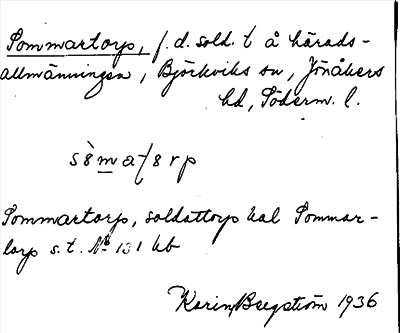 Sommartorp, f. d. sold. t å härads-
allmänningen, Björkviks sn, Jönåkers
hd, Söderm. l.
sò̀mat8rp
Sommartorp, soldattorp kal Sommar-
torp s.t. № 131 kb
Karin Bergström 1936